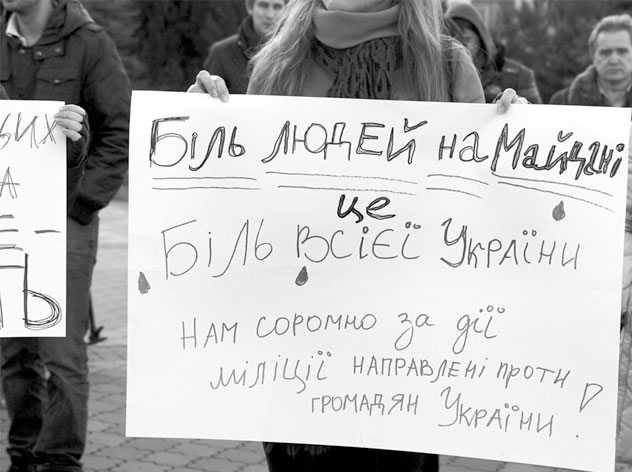 Біль людей на Майдані
це
Біль всієї України
нам соромно за дії
міліції направлені проти
громадян України!